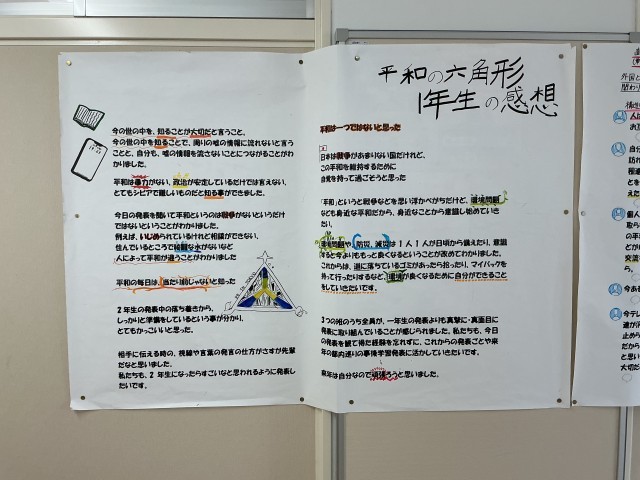 平和の六角形
1年生の感想
今の世の中を、知ることが大切だと言うこと。
今の世の中を知ることで、周りの嘘の情報に流れないと言う
ことと、自分も、嘘の情報を流さないことにつながることがわ
かりました。
平和は暴力がない、政治が安定しているだけでは言えない、
とてもシビアで難しいものだと知る事ができました。
今日の発表を聞いて平和というのは戦争がないというだけ
ではないということがわかりました。
例えば、いじめられているけれど相談できない、
住んでいるところで綺麗な水がないなど
人によって平和が違うことがわかりました
平和の毎日は、当たり前じゃないと知った
2年生の発表中の落ち着きから、
しっかりと準備をしているという事が分かり、
とてもかっこいいと思った。
相手に伝える時の、視線や言葉の発言の仕方がさすが先輩
だなと思いました。
私たちも、2年生になったらすごいなと思われるように発表し
たいです。
平和は一つではないと思った
日本は戦争があまりない国だけれど、
この平和を維持するために
自覚を持って過ごそうと思った
「平和」というと戦争などを思い浮かべがちだけど、環境問題
なども身近な平和だから、身近なことから意識し始めていき
たい。
環境問題や、防災、減災は1人1人が日頃から備えたり、意識
すると今よりももっと良くなるということが改めてわかりました。
これからは、道に落ちているゴミがあったら拾ったり、マイバックを
持って行ったりするなど、環境が良くなるために自分ができること
をしていきたいです。
3つの班のうち全員が、一年生の発表よりも真摯に・真面目に
発表に取り組んでいることが感じられました。私たちも、今日
の発表を観て得た経験を忘れずに、これからの発表ことや来
年の都内巡りの事後学習発表に活かしていきたいです。
来年は自分なので頑張ろうと思いました。
外国
関わり